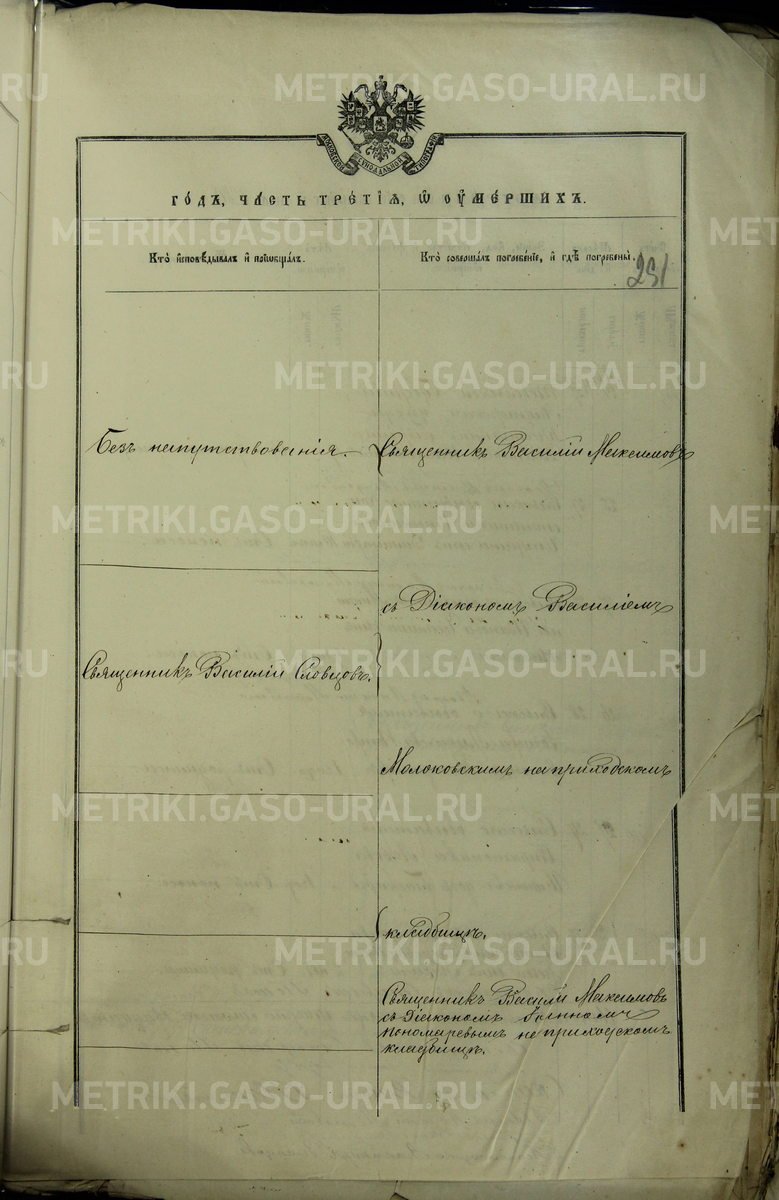 годъ, часть третїѧ, ѡ оумершихъ.
Кто исповѣдывалъ и пріобщалъ.
Кто совершалъ погребенїе, и гдѣ погребены.
251
Безъ напутствованія.
Священникъ Василій Максимовъ
съ Діакономъ Василіемъ
Священникъ Василій Словцовъ.
Молоковскимъ на приходскомъ
кладбищѣ.
Священникъ Василій Максимовъ
съ Діакономъ Іоанномъ
Пономаревымъ на приходскомъ
кладбищѣ.
METRIKI.GASO-URAL.RU